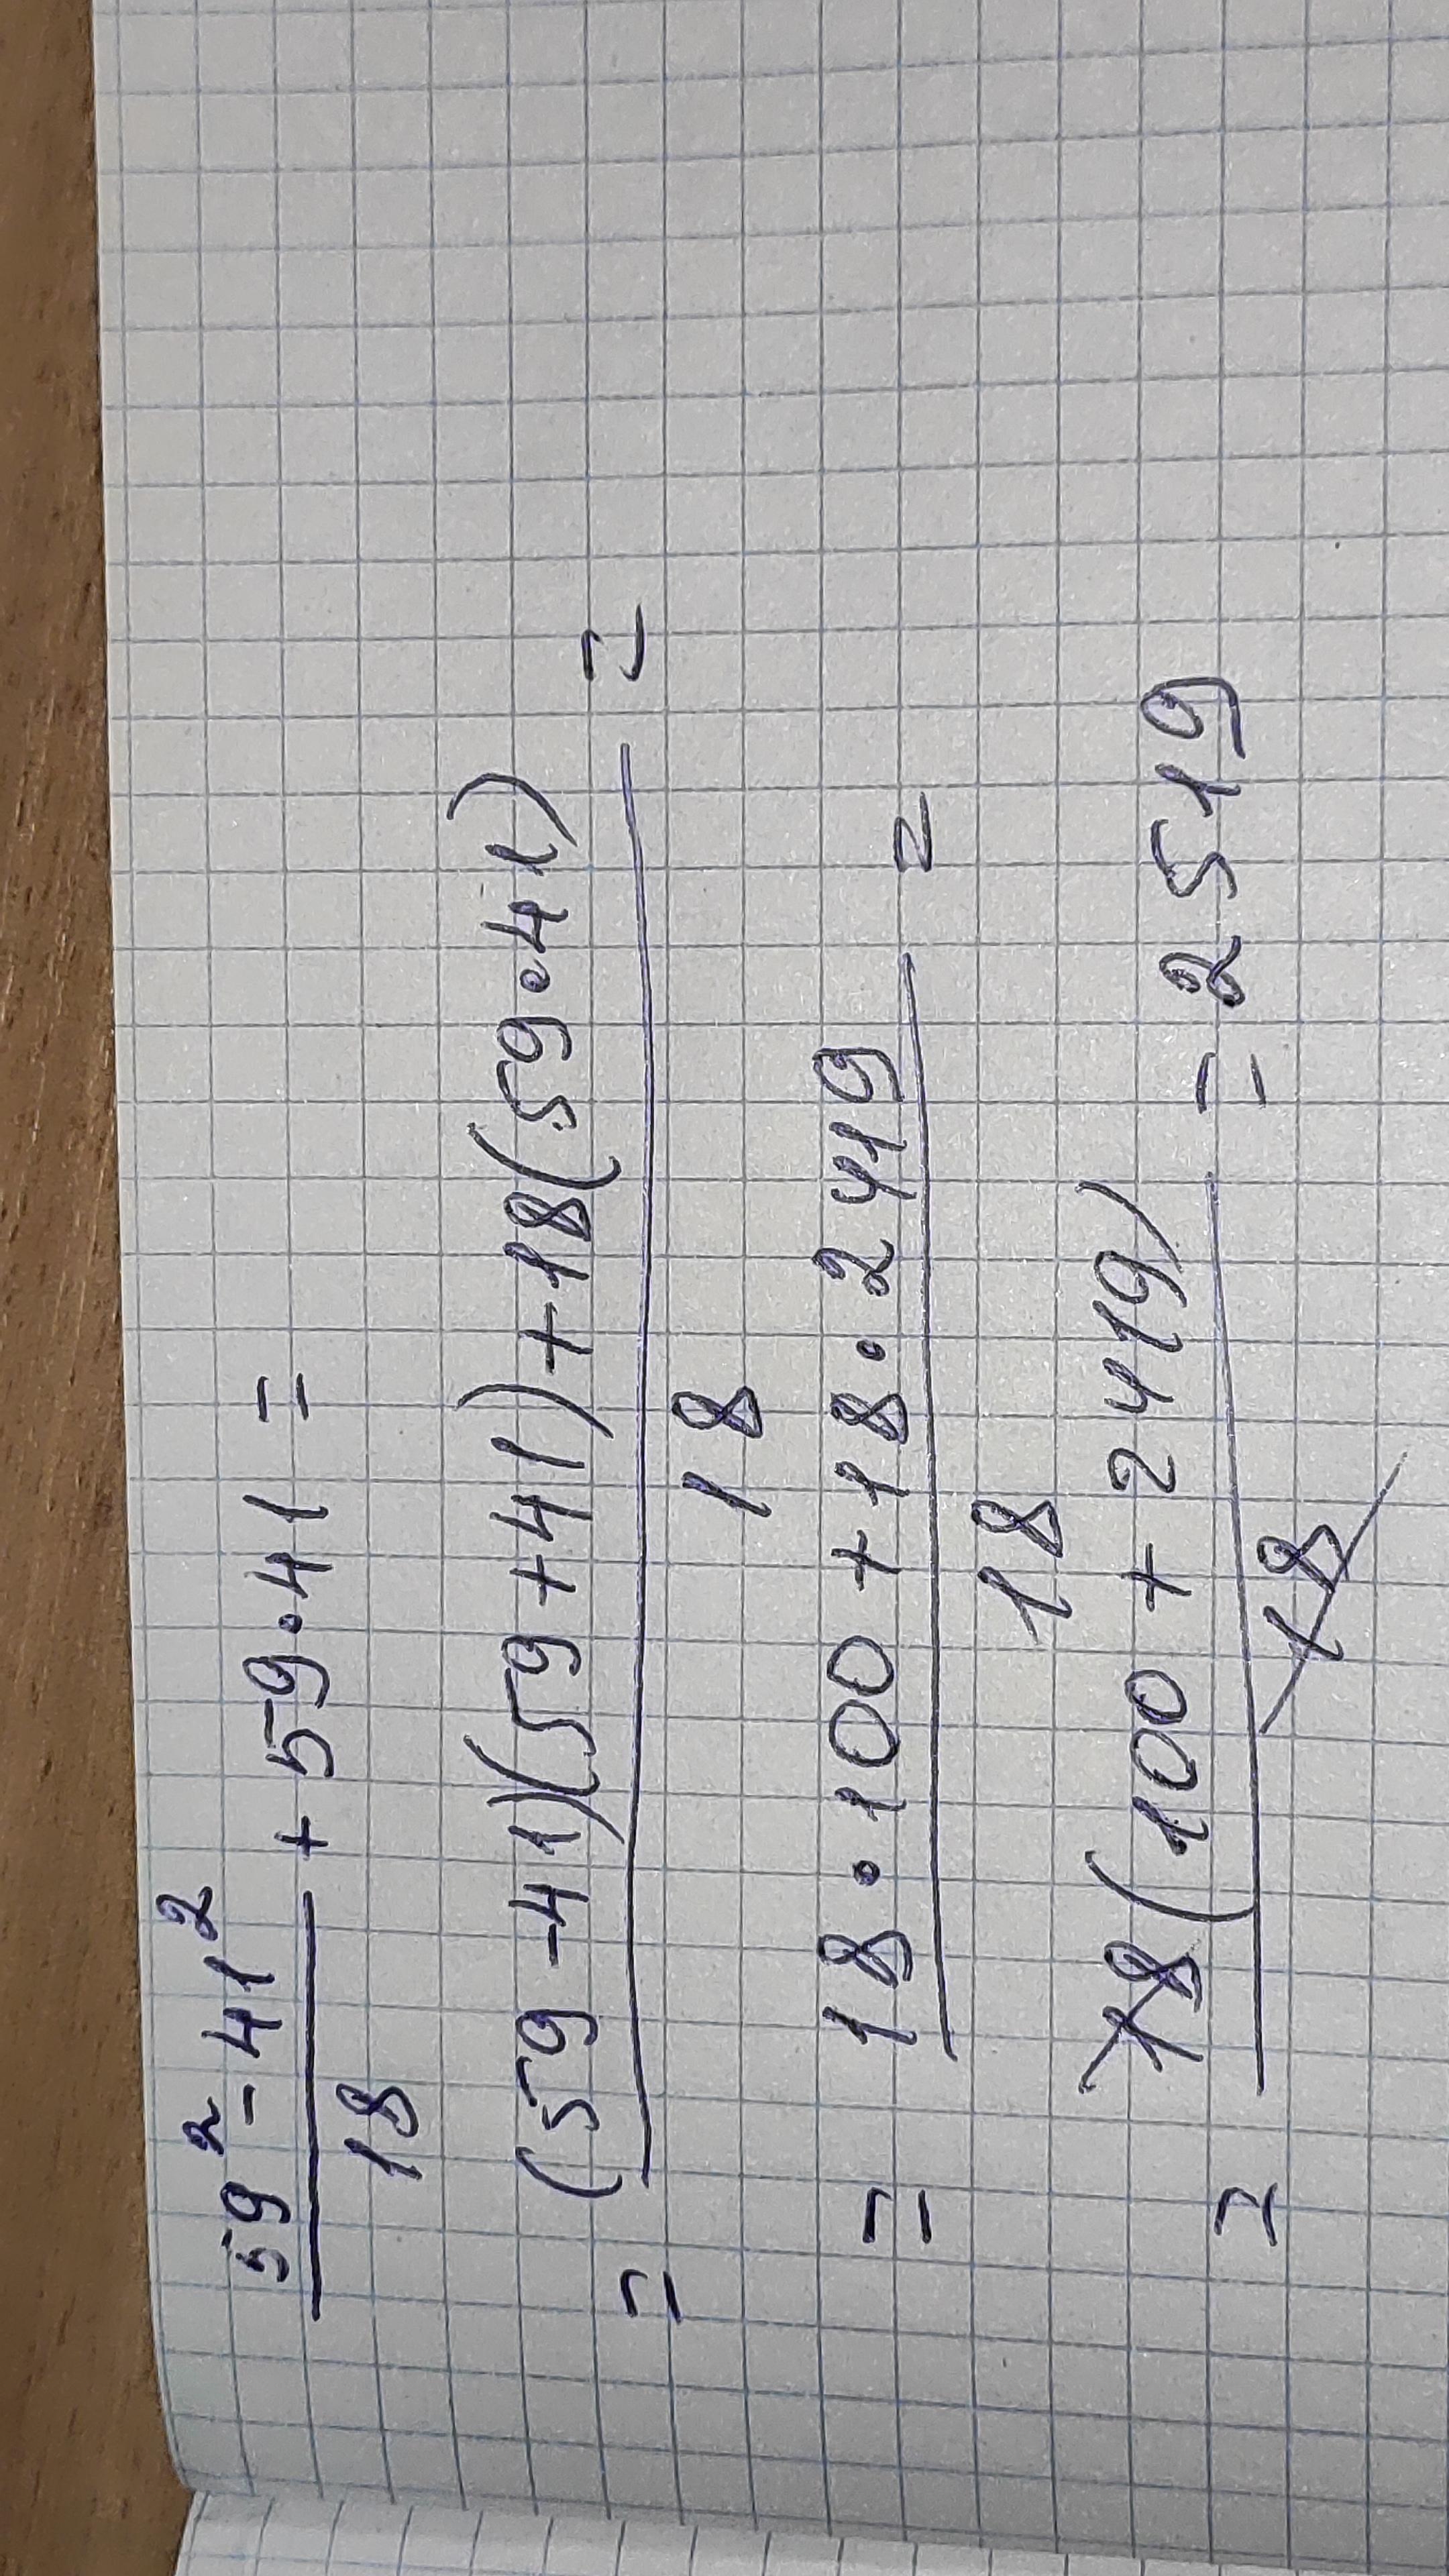 59² - 41²
18
+ 59 · 41 =
= (59 - 41)(59 + 41) + 18(59 · 41)
18
=
= 18 · 100 + 18 · 2419
18
=
= 18(100 + 2419)
18
= 2519